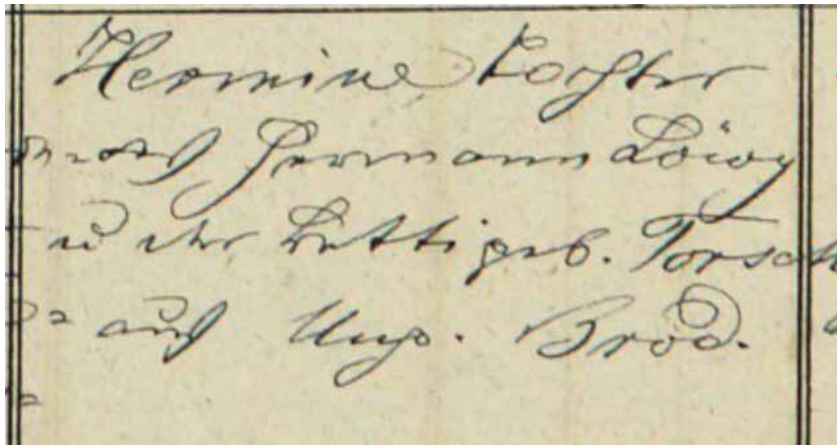 Hermine Tochter
des Hermann Löwy
u der Betti geb. Torsch
aus Ung. Brod.